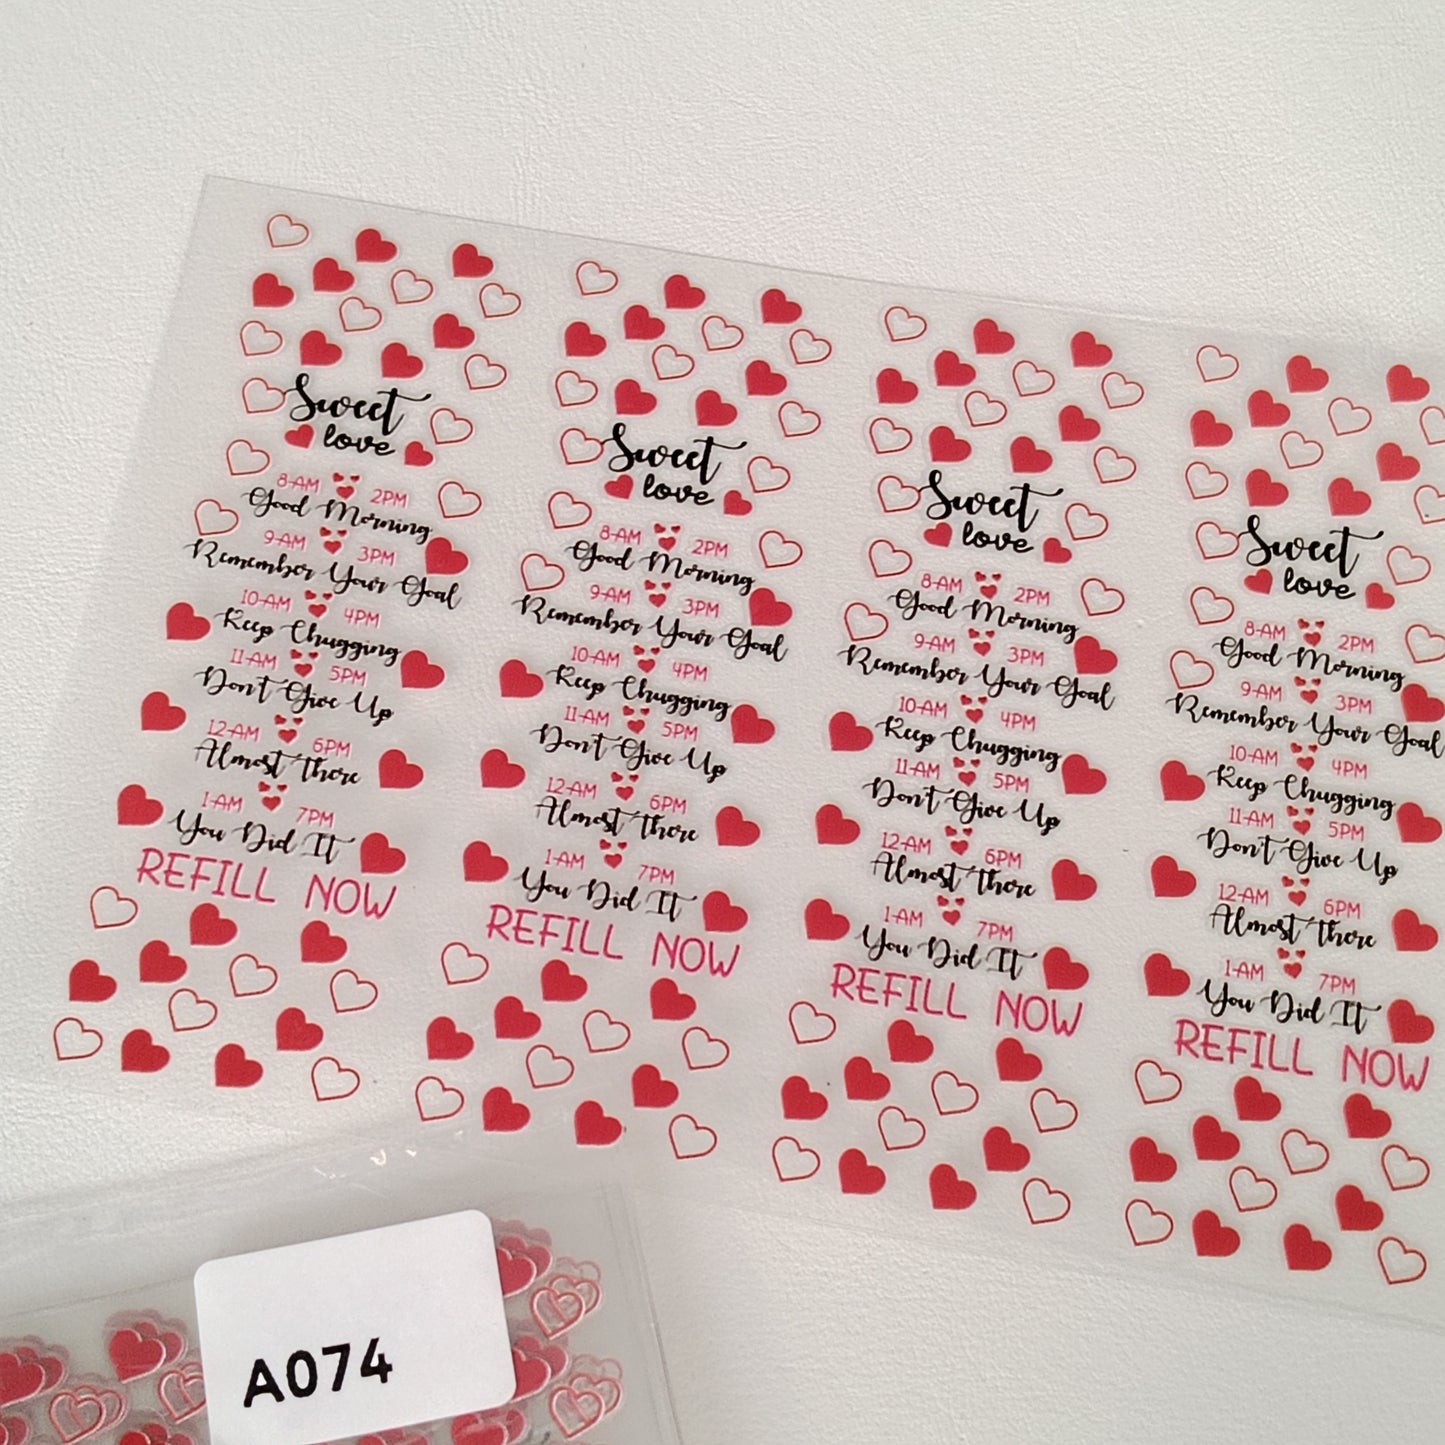 Sweet
love
8-AM 2PM
Good Morning
9-AM 3PM
Remember Your Goal
10-AM 4PM
Keep Chugging
11-AM 5PM
Don't Give Up
12-AM 6PM
Almost There
1-AM 7PM
You Did It
REFILL NOW
Sweet
love
8-AM 2PM
Good Morning
9-AM 3PM
Remember Your Goal
10-AM 4PM
Keep Chugging
11-AM 5PM
Don't Give Up
12-AM 6PM
Almost There
1-AM 7PM
You Did It
REFILL NOW
Sweet
love
8-AM 2PM
Good Morning
9-AM 3PM
Remember Your Goal
10-AM 4PM
Keep Chugging
11-AM 5PM
Don't Give Up
12-AM 6PM
Almost There
1-AM 7PM
You Did It
REFILL NOW
Sweet
love
8-AM 2PM
Good Morning
9-AM 3PM
Remember Your Goal
10-AM 4PM
Keep Chugging
11-AM 5PM
Don't Give Up
12-AM 6PM
Almost There
1-AM 7PM
You Did It
REFILL NOW
A074